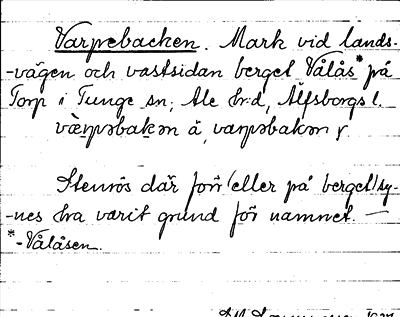 Varpebacken. Mark vid lands-
-vägen och vastsidan berget Vålås* på
Torp i Tunge sn; Ale hrd, Älfsborgs l.
väŗpəbakən ä, varpəbakən γ.
Stenrös där förr (eller på berget) sy-
-nes hra varit grund för namnet. —
*-Vålåsen.